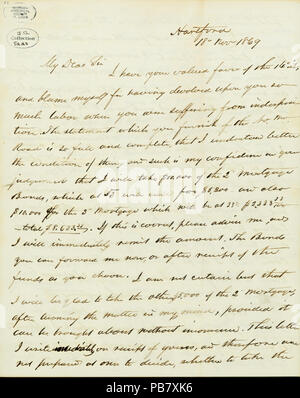 Hartford
18 Nov 1869
My Dear Sir
I have your valued favor of the 16th inst
and blame myself for having devolved upon you so
much labor when you were suffering from indisposi-
tion. The statement which you furnish of the
Road is so full and complete, that I understand better
the condition of them and such is my confidence in your
judgement that I will take $16.000 of the 2d Mortgage
Bonds, which at 55 will be for $8,800 and also
$10.000 of the 3d Mortgage which will be at
total If this is correct please advise me, and
I will immediately remit the amount. The Bonds
you can forward me now or after receipt of the
funds as you choose. I am not certain but that
I will be glad to take the other $5,000 of the 2d mortgage
after turning the matter in my mind, provided it
can be brought about without inconvenience. This letter
I write immediately on receipt of yours, and therefore am
not prepared as over to decide, whether to take the
Collection
alamy
PB7XK6